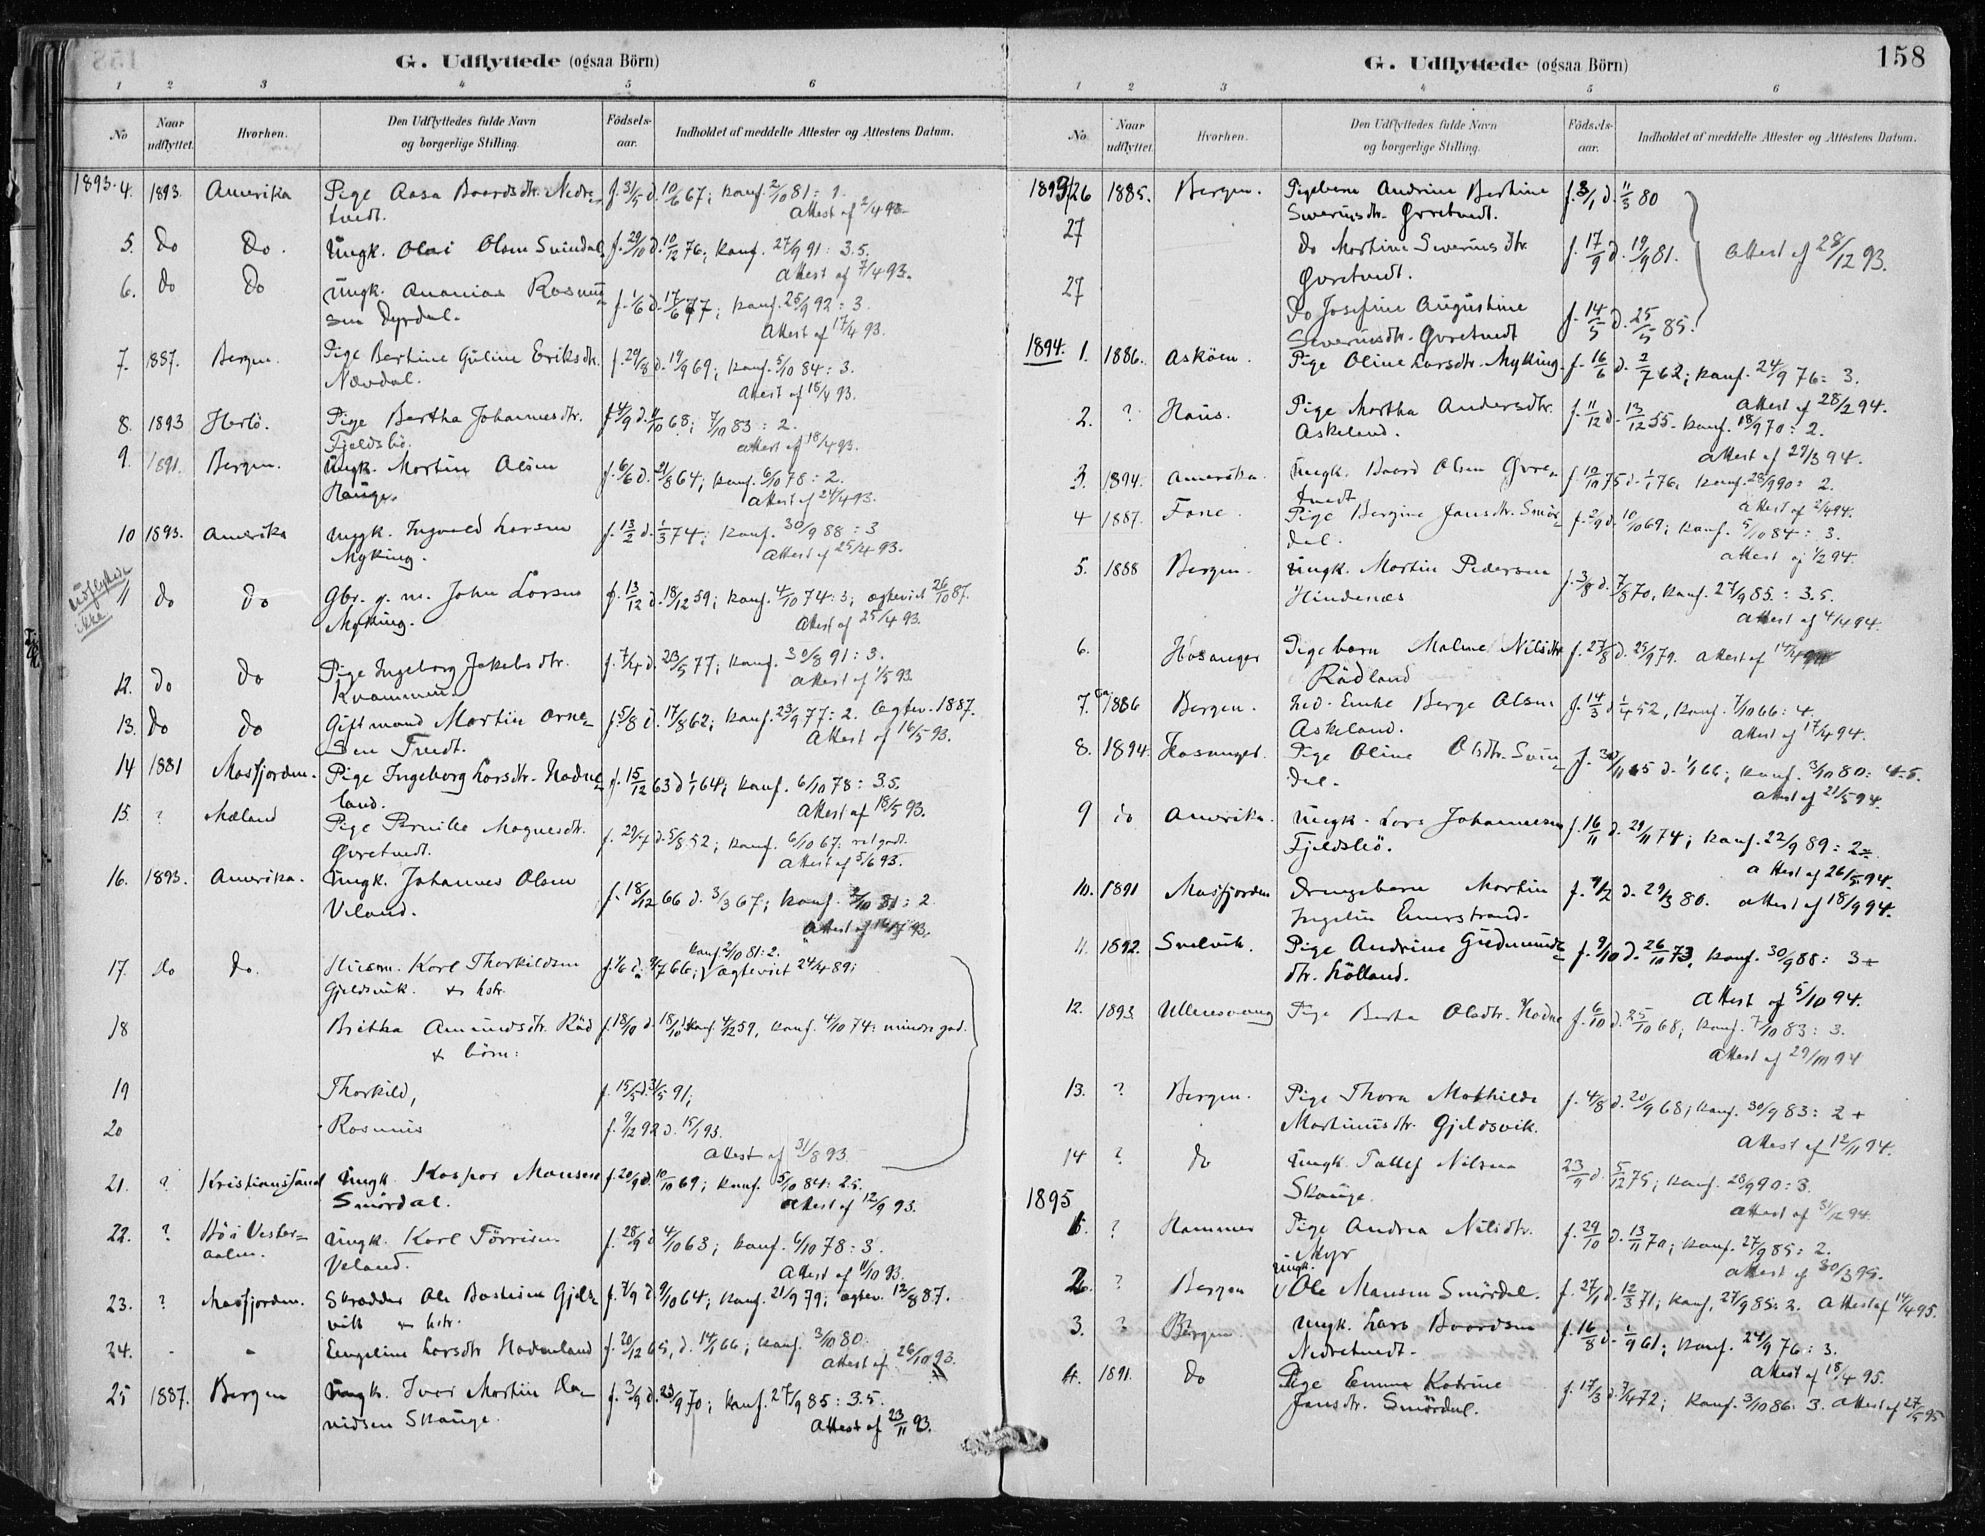 G. Udflyttede (ogsaa Börn)
1 2 3 4 5 6
No Naar udflyttet. Hvorhen. Den Udflyttedes fulde Navn og borgerlige Stilling. Födsels-aar. Indholdet af meddelte Attester og Attestens Datum.
1893. 4. 1893. Amerika Pige Aasa Baardsdtr. Nedre- f. 31/5 d. 10/6 67; konf. 2/10 81: 1.
tvedt. Attest af 2/4 93.
5. do do. Ungk. Olai Olsen Svindal f. 29/10 d. 10/12 76; konf. 27/9 91: 3.5.
Attest af 7/4 93.
6. do do Ungk. Ananias Rasmus- f. 1/6 d. 17/6 77; konf. 25/9 92: 3.
sen Dyrdal. Attest af 17/4 93.
7. 1887. Bergen. Pige Bertine Guline Eriksdtr. f. 29/8 d. 19/9 69; konf. 5/10 84: 3.
Nævdal. Attest af 18/4 93.
8. 1893 Herlö. Pige Bertha Johannesdtr. f. 4/9 d. 11/10 68; 7/10 83: 2.
Fjeldsbö. Attest af 18/4 93.
9. 1891. Bergen. Ungk. Martin Olsen f. 6/6 d. 21/8 64; konf. 6/10 78: 2.
Hauge. Attest af 24/4 93.
10 1893. Amerika Ungk. Ingvald Larsen f. 13/2 d. 1/3 74; konf. 30/9 88: 3
Myking. Attest af 25/4 93.
udflyttede ikke
11 do do Gbr. g. m. John Larsen f. 13/12 d. 18/12 59; konf. 4/10 74: 3; ægteviet 26/10 87.
Myking. Attest af 25/4 93.
12. do do Pige Ingeborg Jakobsdtr. f. 7/4 d. 23/5 77; konf. 30/8 91: 3.
Kvammen. Attest af 1/5 93
13. do do Giftmand Martin Arne- f. 5/8 d. 17/8 62; konf. 23/9 77: 2. Ægtev. 1887.
sen Tvedt. Attest af 16/5 93.
14 1881 Masfjorden. Pige Ingeborg Larsdtr. Hodne- f. 15/12 63 d 1/1 64; konf. 6/10 78: 3.5.
land. Attest af 18/5 93.
15. ? Mæland Pige Pernille Magnesdtr. f. 29/7 d. 5/8 52; konf. 6/10 67: ret godt.
Øvretvedt. Attest af 5/6 93.
16. 1893. Amerika. Ungk. Johannes Olsen f. 18/12 66 d. 3/3 67; konf. 2/10 81: 2
Veland. Attest af
17. do do. Husm. Karl Thorkildsen f. 1/6 d. 9/7 66; konf. 2/10 81: 2. ægteviet 24/4 89;
Gjeldsvik. & hstr.
18 Brithe Amundsdtr. Räd f. 18/10 d. 59, konf. 4/10 74: mindre god.
& börn:
19 Thorkild, f. 15/5 d. 31/5 91;
20 Rasmus f. 9/12 92 d. 15/1 93.
Attest af 31/8 93.
21. ? Kristianssund Ungk. Kaspar Monsen f. 20/9 d. 10/10 69; konf. 5/10 84: 2.5.
Smördal. Attest af 12/9 93.
22. ? Bö i Vester- Ungk. Karl Törrisen f. 28/9 d 4/10 63; konf. 6/10 78: 3.
aalen. Veland. Attest af 11/10 93.
23. ? Masfjorden. Skrædder Ole Bastian Gjels- f. 7/9 d. 9/10 64; konf. 21/9 79; ægtev. 12/8 87.
vik & hstr.
24. - - Engeline Larsdtr Hodneland f. 20/12 65, d. 14/1 66; konf. 3/10 80.
Attest af 26/10 93.
25 1887. Bergen Ungk. Iver Martin Da- f. 3/9 d. 23/9 70; konf. 27/9 85: 3.5.
nidsen Skauge. Attest af 23/11 93.
G. Udflyttede (ogsaa Börn) 158
1 2 3 4 5 6
No. Naar udflyttet. Hvorhen. Den Udflyttedes fulde Navn og borgerlige Stilling. Födsels-aar. Indholdet af meddelte Attester og Attestens Datum.
1893 26 1885. Bergen. Pigebarn Andrine Bertine f. 3/1 d. 11/3 80
Severinsdtr. Øvretvedt.
27 do Martine Severinsdtr. f. 17/9 d. 19/9 81. Attest af 28/12 93.
Øvretvedt.
27 do Josefine Augustine f. 14/5 d. 25/5 85.
Severinsdtr. Øvretvedt
1894. 1. 1886. Asköen. Pige Oline Larsdtr. Myking. f. 16/6 d. 2/7 62; konf. 24/9 76: 3.
Attest af 28/2 94.
2. ? Haus. Pige Martha Andersdtr. f. 11/12 d. 13/12 55. konf. 18/9 70: 2.
Askeland. Attest af 27/3 94.
3. 1894. Amerika. Ungk. Baard Olsen Øvre- f. 10/10 75 d. 1/1 76, konf. 28/9 90: 2.
tvedt Attest af 2/4 94.
4 1887. Fane. Pige Bergine Jansdtr. Smör- f. 2/9 d. 10/10 69; konf. 5/10 84: 3.
dal. Attest af 1/2 94.
5. 1888 Bergen. Ungk. Martin Pedersen f. 3/8 d. 7/8 70, konf. 27/9 85: 3.5.
Hindenæs Attest af 4/4 94.
6. Hosanger Pigebarn Malene Nilsdtr. f. 23/8 d. 25/9 79. Attest af 14/4 94
Rädland
7. 1886 Bergen. Ned. Enke Berge Olsen f. 14/3 d 1/4 52, konf. 7/10 66: 4.
Askeland. Attest af 17/4 94.
8. 1894. Hosanger. Pige Oline Olsdtr. Svin- f. 30/11 65 d. 1/1 66; konf. 3/10 80: 4.5.
dal. Attest af 21/5 94.
9 do Amerika. Ungk. Lars Johannesen f. 16/11 d. 29/11 74; konf. 22/9 89: 2.
Fjeldsbö. Attest af 26/5 94.
10. 1891 Masfjorden Drengebarn Martin f. 9/2 d. 29/3 80. Attest af 18/9 94.
Ingelin Einerstrand.
11. 1892. Svelvik. Pige Andrine Gudmunds- f. 9/10 d. 26/10 73, konf. 30/9 88: 3+
dtr. Kolland. Attest af 5/10 94.
12. 1893 Ullensvang Pige Berta Olsdtr. Hodne f. 6/10 d. 25/10 68; konf. 7/10 83: 3.
Attest af 29/10 94
13. ? Bergen. Pige Thora Mathilde f. 4/8 d. 20/9 68; konf. 30/9 83: 2+
Martinusdtr. Gjeldsvik. Attest af 12/11 94.
14 ? do Ungk. Tollef Nilsen 23/9 d. 5/12 75; konf. 28/9 90: 3.
Skauge. Attest af 31/12 94.
1895
1. ? Hammer Pige Andrea Nilsdtr. f. 29/10 d. 13/11 70; konf. 27/9 85: 2.
Myr Attest af 30/3 95.
2. ? Bergen Ungk. Ole Mansen Smördal. f. 27/1 d. 12/3 71; konf. 27/9 85: 2. Attest af 14/4 95.
3. ? Bergen. Ungk. Lars Baardsen f. 16/8 d. 1/9 61; konf. 24/9 76: 3.
Nedretvedt. Attest af 18/4 95.
4. 1891. do Pige Emma Katrine f. 17/3 d. 7/4 72; konf. 3/10 86: 3. Attest af 27/5 95
Jansdtr. Smördal.